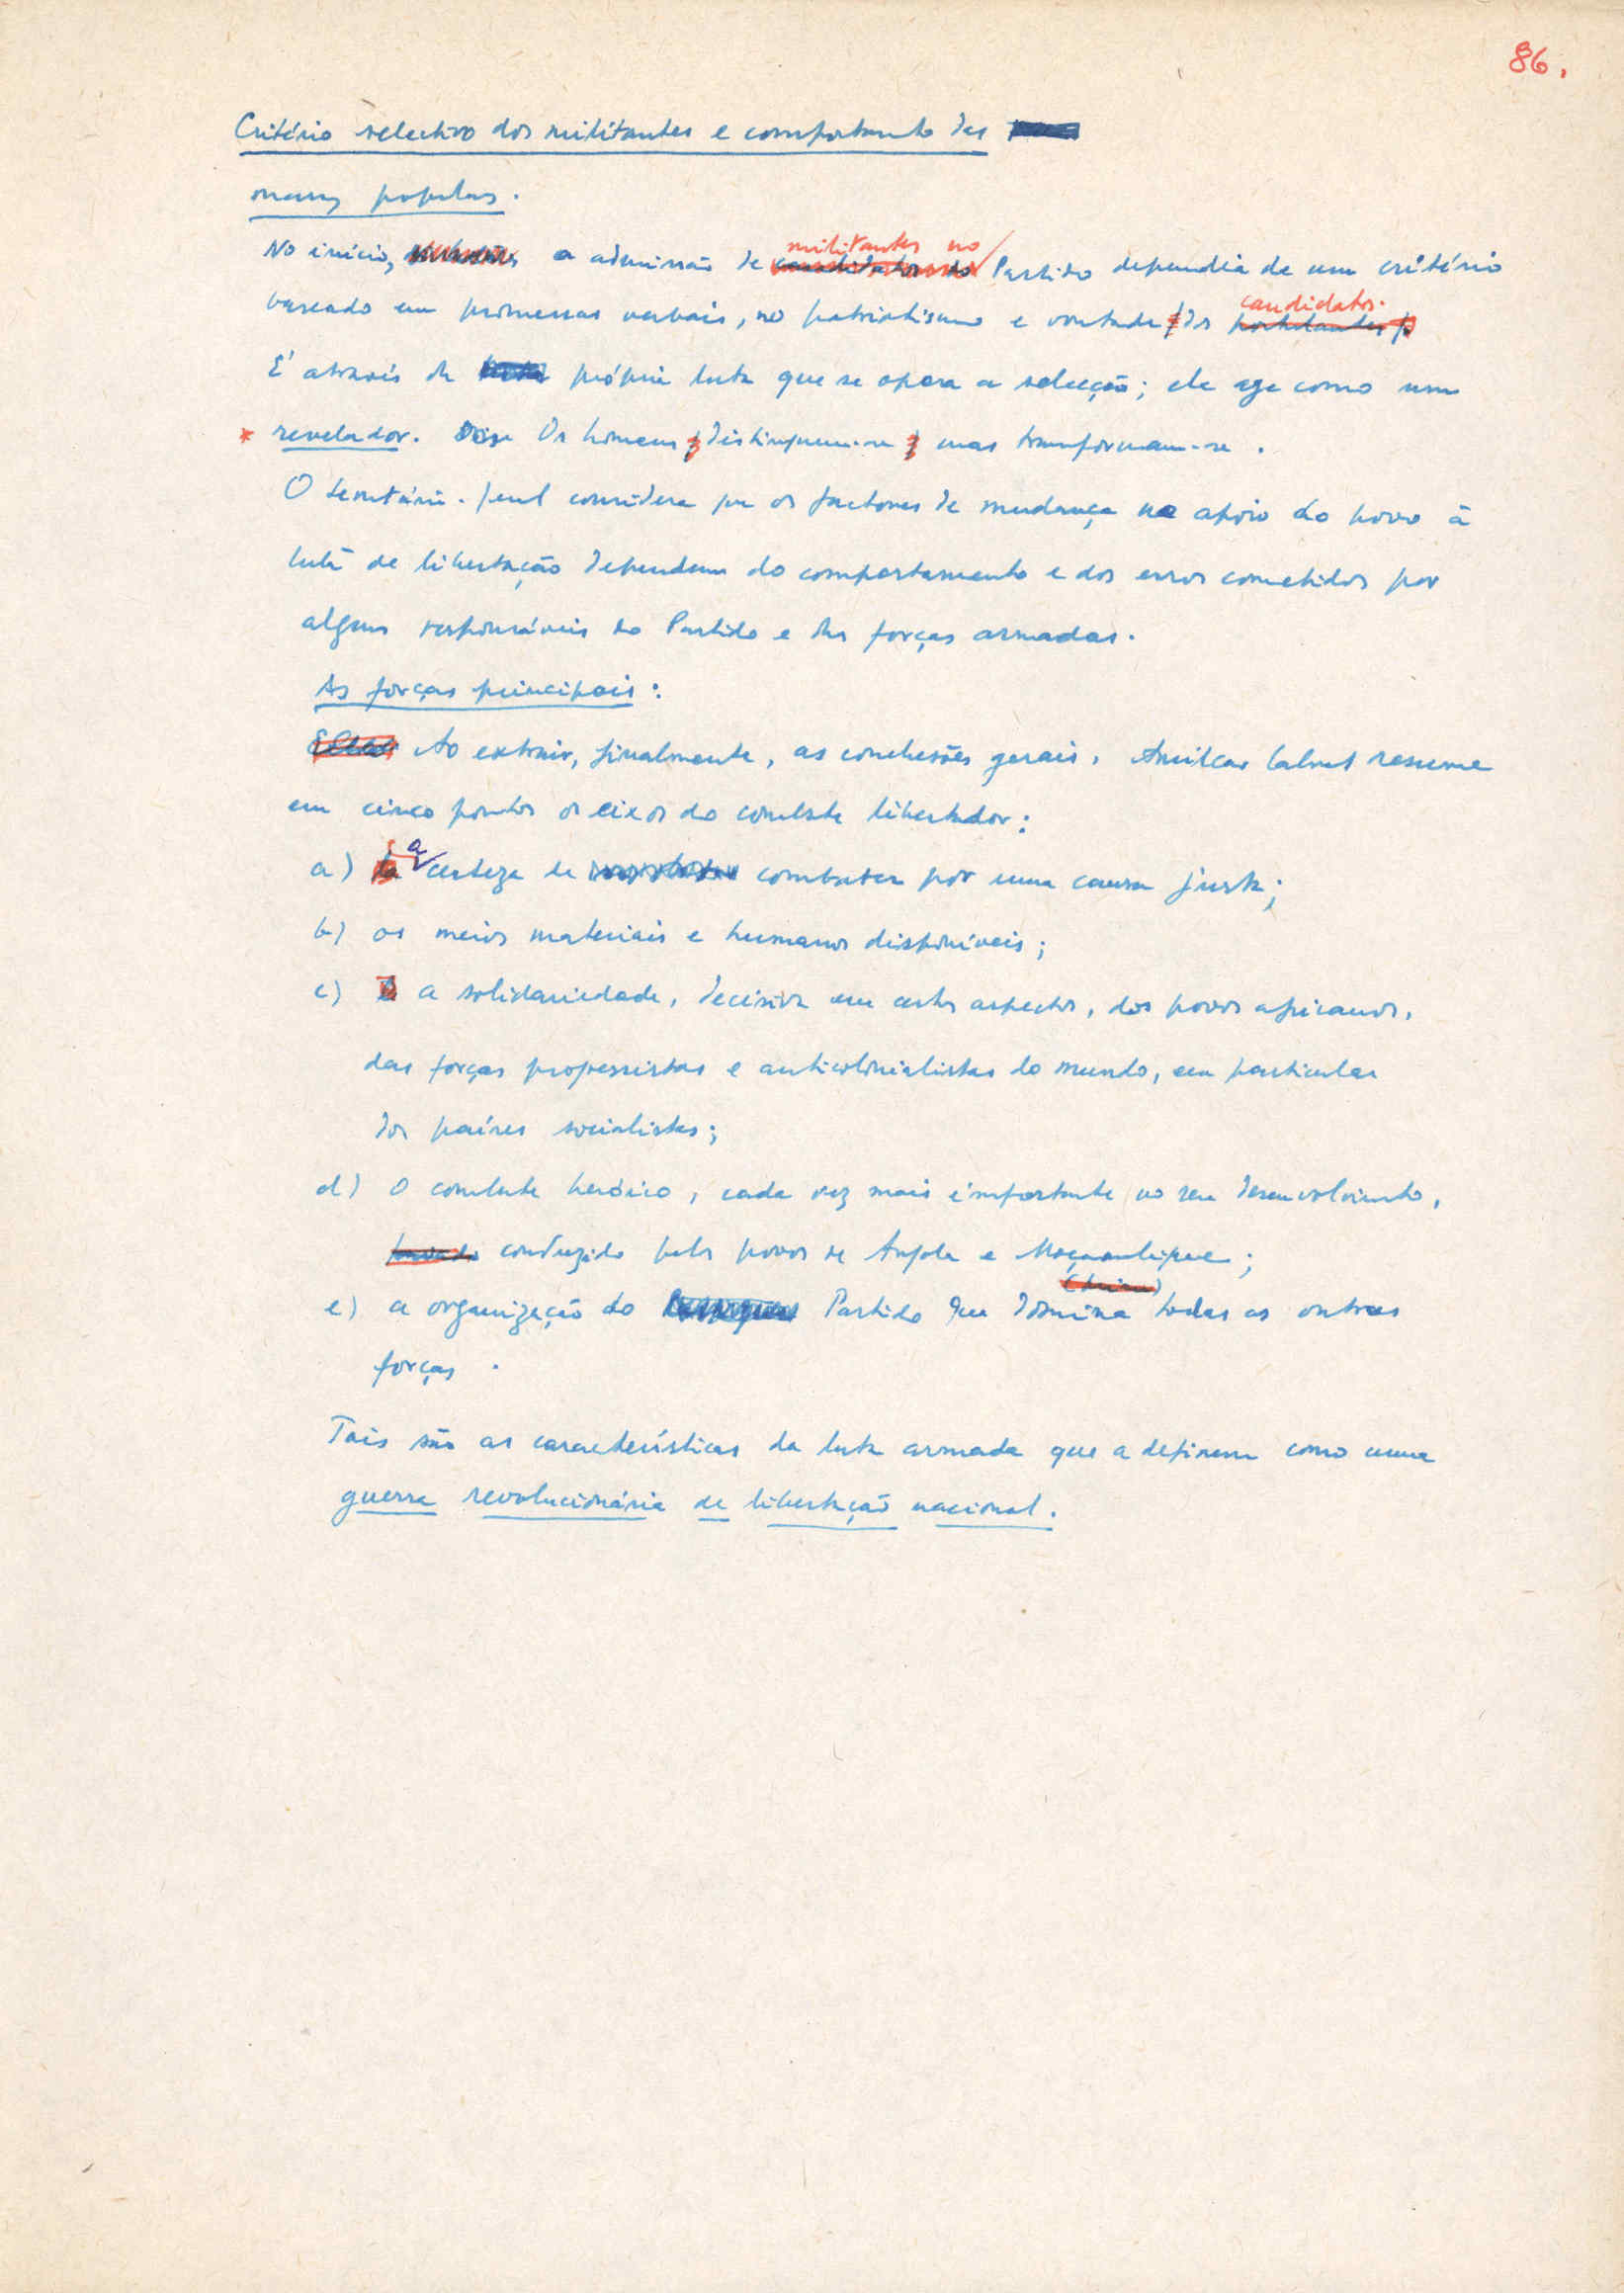 86.
Critério selectivo dos militantes e comportamento das
massas populares.
No início, a admissão de militantes no Partido dependia de um critério
baseado em promessas verbais, no patriotismo e vontade dos candidatos.
É através da própria luta que se opera a selecção; ela age como um
* revelador. Os homens distinguem-se mas transformam-se.
O secretário-geral considera que os factores de mudança no apoio do povo à
luta de libertação dependem do comportamento e dos erros cometidos por
alguns responsáveis do Partido e das forças armadas.
As forças principais:
Ao extrair, finalmente, as conclusões gerais, Amílcar Cabral resume
em cinco pontos os eixos do combate libertador:
a) a certeza de combater por uma causa justa;
b) os meios materiais e humanos disponíveis;
c) a solidariedade, decisiva em certos aspectos, dos povos africanos,
das forças progressistas e anticolonialistas do mundo, em particular
dos países socialistas;
d) o combate heróico, cada vez mais importante no seu desenvolvimento,
conduzido pelos povos de Angola e Moçambique;
e) a organização do Partido que domina todas as outras
forças.
Tais são as características da luta armada que a definem como uma
guerra revolucionária de libertação nacional.